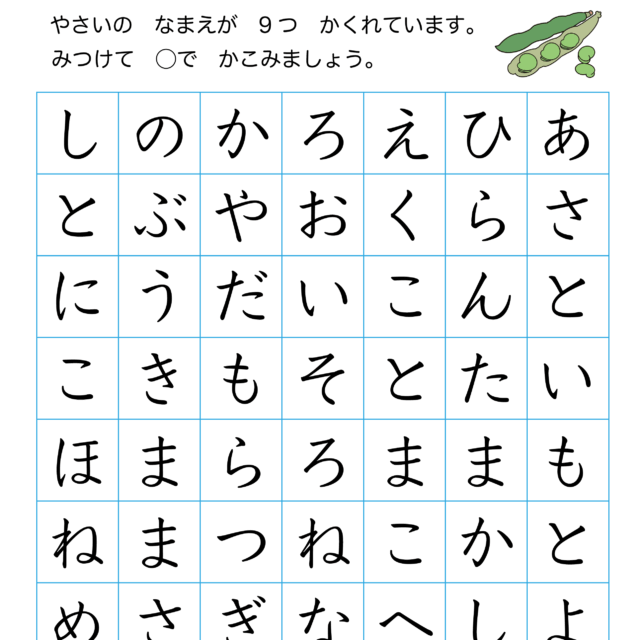 やさいの　なまえが　９つ　かくれています。
みつけて　○で　かこみましょう。
し の か ろ え ひ あ
と ぶ や お く ら さ
に う だ い こ ん と
こ き も そ と た い
ほ ま ら ろ ま ま も
ね ま つ ね こ か と
め さ ぎ な へ し よ